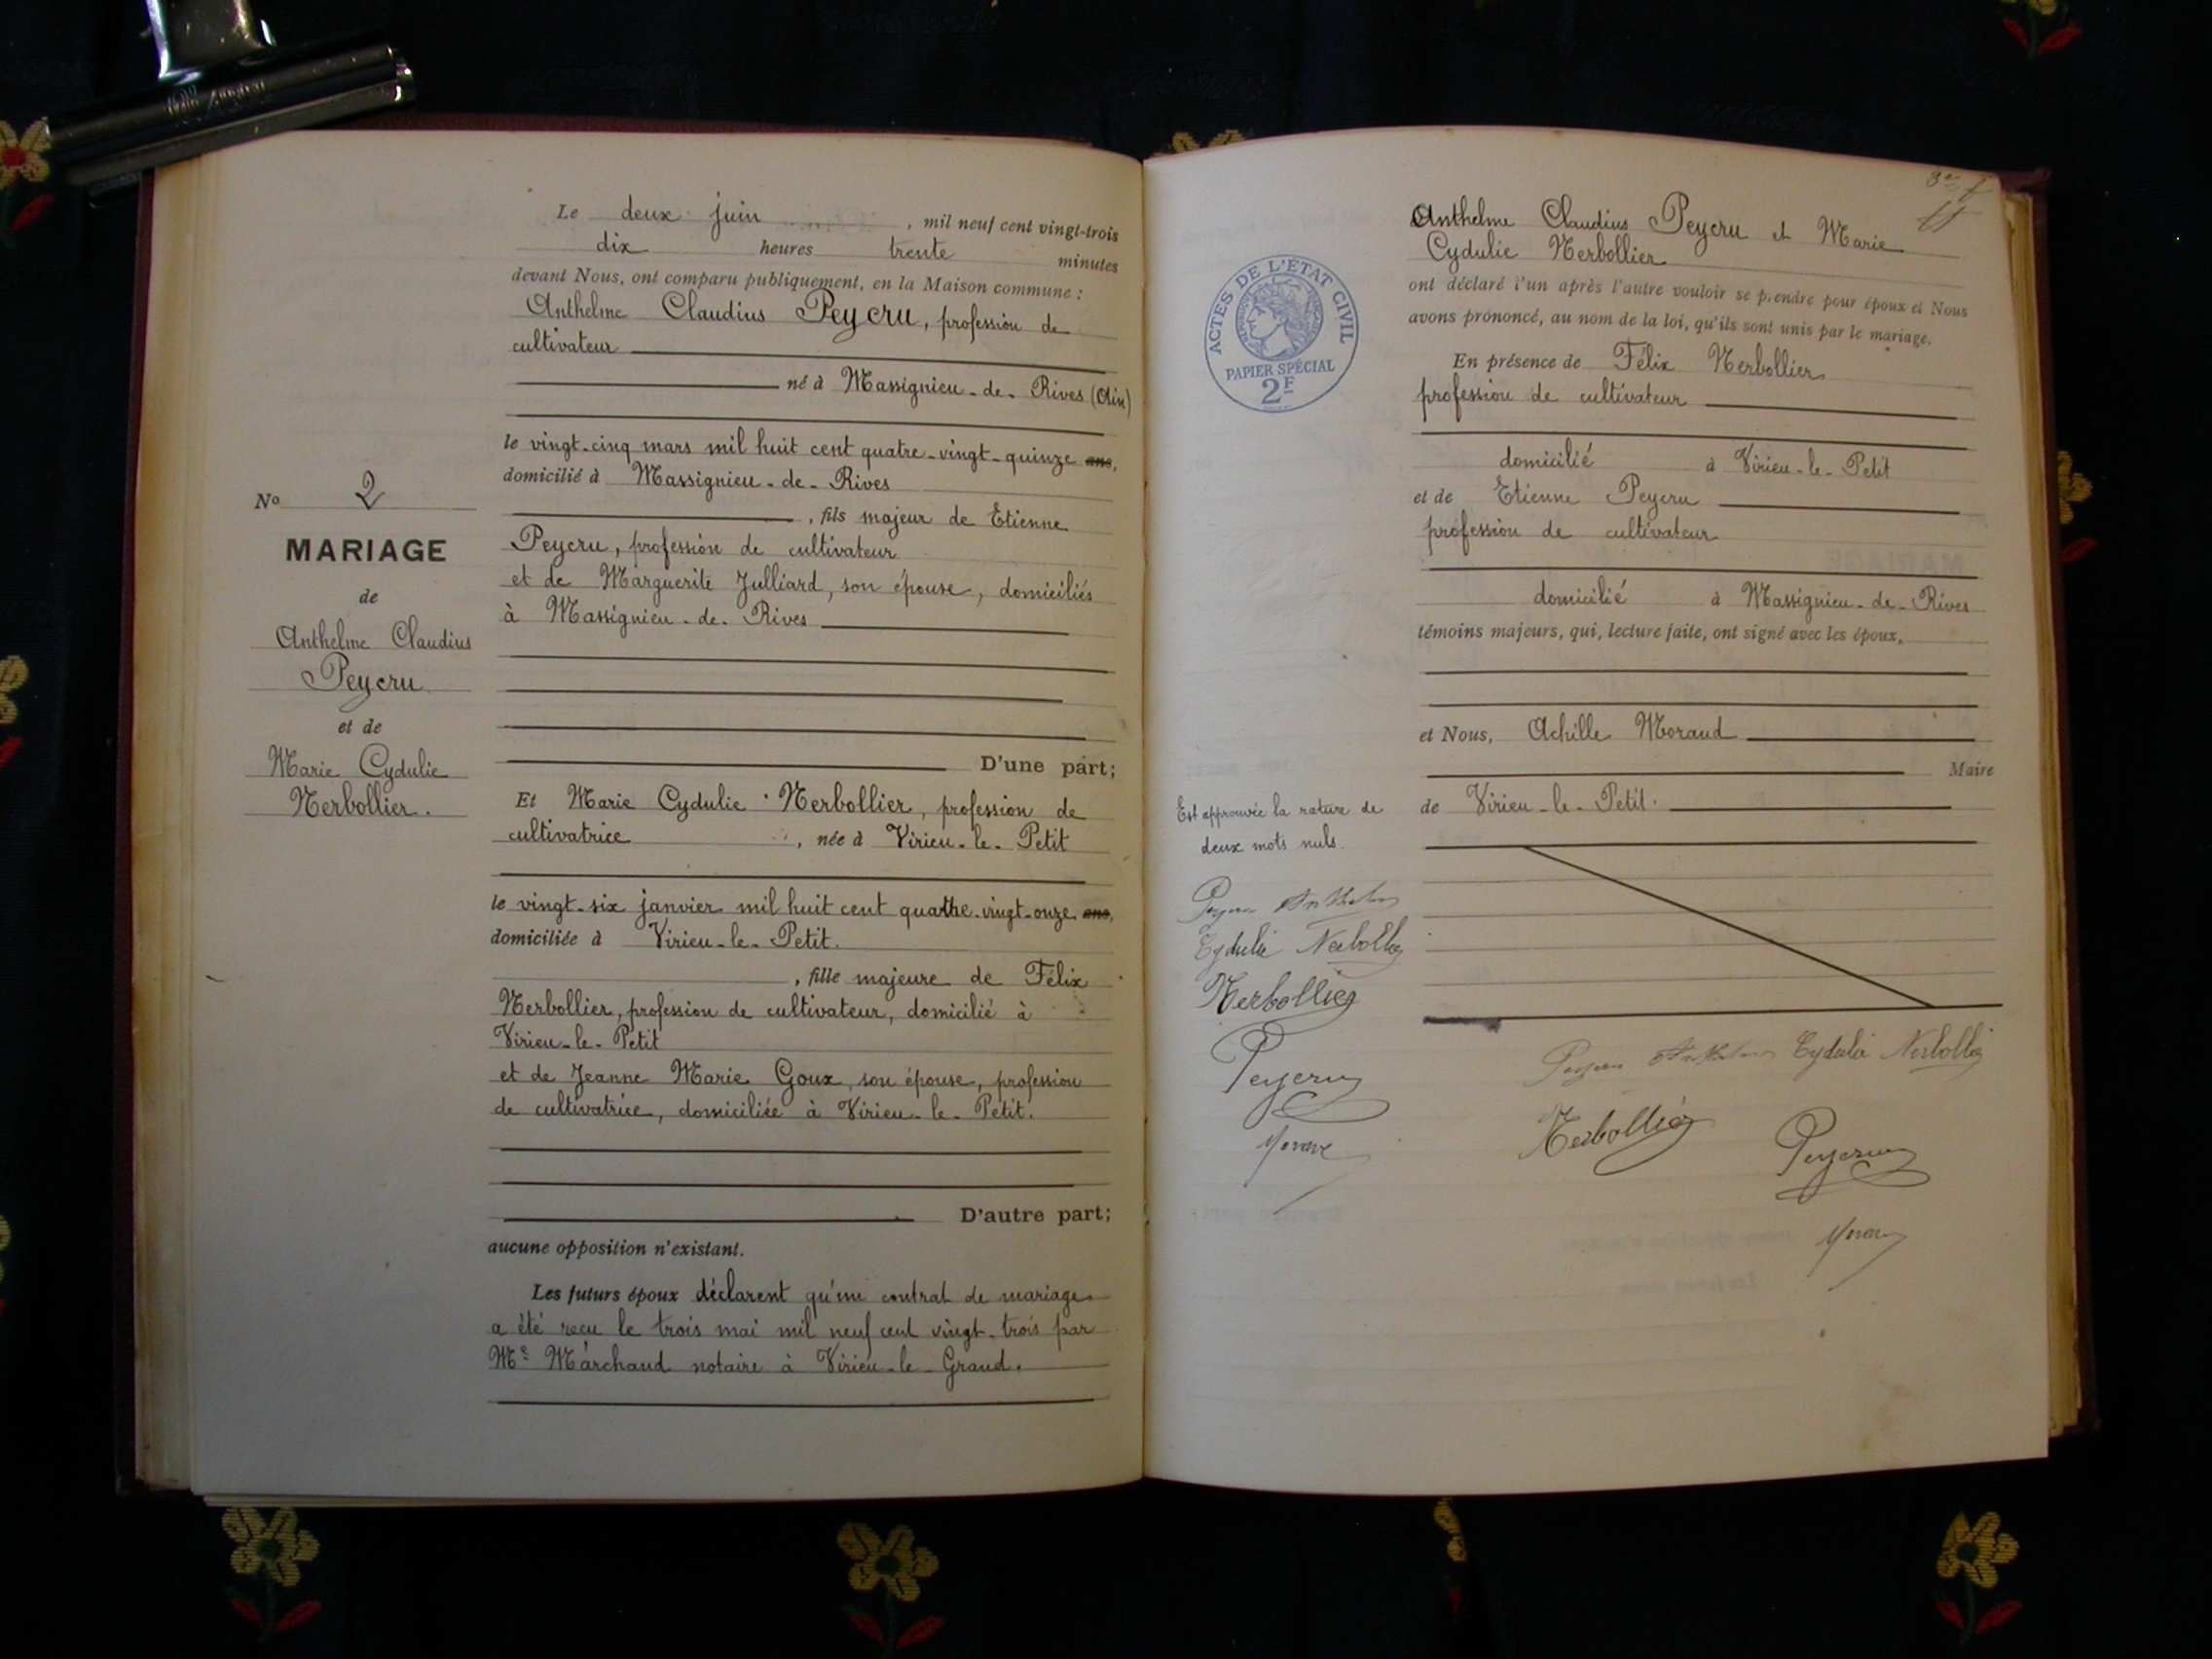 N° 2
MARIAGE
de
Anthelme Claudius
Peycru
et de
Marie Cydulie
Nerbollier.
Le deux juin , mil neuf cent vingt-trois
dix heures trente minutes
devant Nous, ont comparu publiquement, en la Maison commune :
Anthelme Claudius Peycru, profession de
cultivateur
né à Massignieu-de-Rives (Ain)
le vingt-cinq mars mil huit cent quatre-vingt-quinze ans,
domicilié à Massignieu-de-Rives
, fils majeur de Etienne
Peycru, profession de cultivateur
et de Marguerite Julliard, son épouse, domiciliés
à Massignieu-de-Rives
D'une part;
Et Marie Cydulie Nerbollier, profession de
cultivatrice , née à Virieu-le-Petit
le vingt-six janvier mil huit cent quatre-vingt-onze ans,
domiciliée à Virieu-le-Petit.
, fille majeure de Félix
Nerbollier, profession de cultivateur, domicilié à
Virieu-le-Petit
et de Jeanne Marie Goux, son épouse, profession
de cultivatrice, domiciliée à Virieu-le-Petit.
D'autre part;
aucune opposition n'existant.
Les futurs époux déclarent qu'un contrat de mariage
a été reçu le trois mai mil neuf cent vingt-trois par
Me Marchand notaire à Virieu-le-Grand.
Anthelme Claudius Peycru et Marie
Cydulie Nerbollier
ont déclaré l'un après l'autre vouloir se prendre pour époux et Nous
avons prononcé, au nom de la loi, qu'ils sont unis par le mariage.
En présence de Félix Nerbollier
profession de cultivateur
domicilié à Virieu-le-Petit
et de Etienne Peycru
profession de cultivateur
domicilié à Massignieu-de-Rives
témoins majeurs, qui, lecture faite, ont signé avec les époux,
et Nous, Achille Morand
Maire
de Virieu-le-Petit.
ACTES DE L'ÉTAT CIVIL
PAPIER SPÉCIAL
2F
Est approuvée la rature de
deux mots nuls.
Peycru Anthelme
Cydulie Nerbollier
Nerbollier
Peycru
Morand
Peycru Anthelme Cydulie Nerbollier
Nerbollier
Peycru
Morand